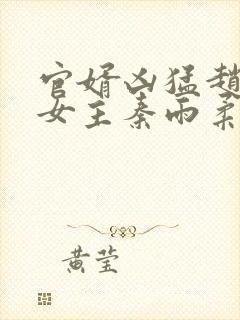 官婿凶猛赵
女主秦雨柔
黄莹